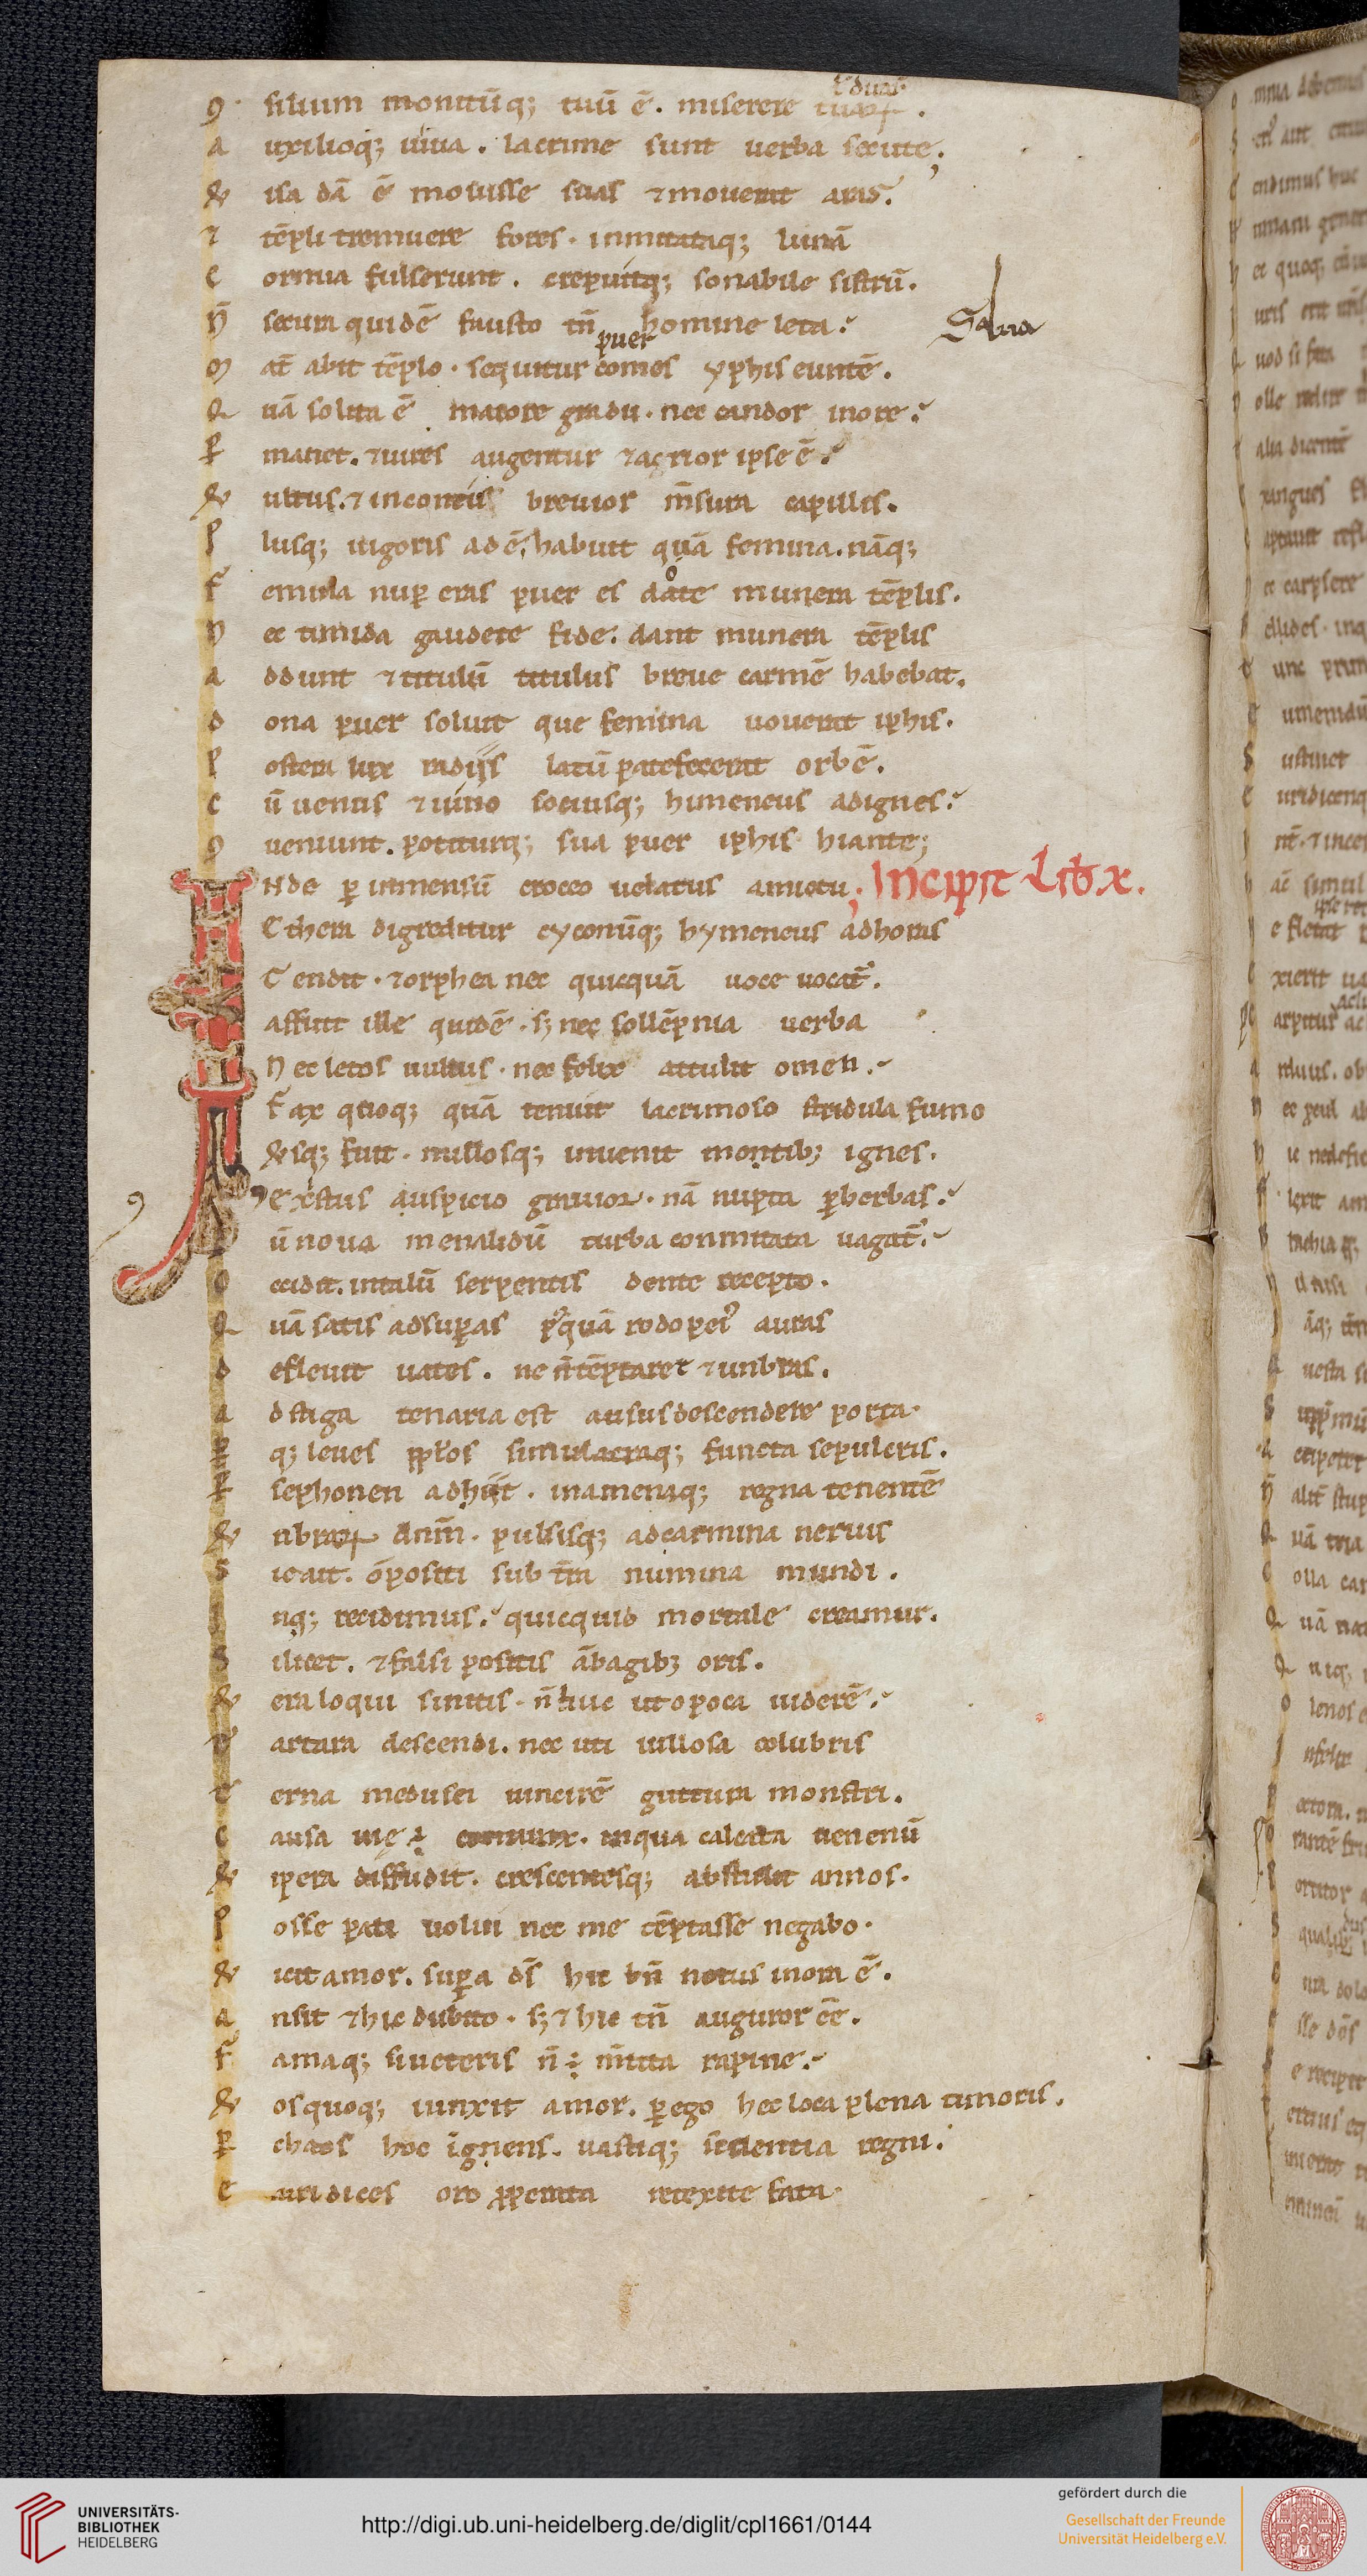 ꝯ silium monitūq; tuū ē. miserere tuaꝝ. ł duaꝝ
a uxilioq; iuua. lacrime sunt uerba secute;
& isa dā ē mouisse suas ⁊ mouerat aras.
⁊ tēpli tremuere fores. inmitataq; lunā
c ornua fulserunt. crepuitq; sonabile sistrū.
ñ secura quidē fausto tñ homine leta. Salua
m at̄ abit tēplo. sequitur puer comes yphis euntē.
q uā solita ē maiore gradu. nec candor inore.
ꝑ manet. ⁊ uires augentur ⁊ acrior ipse ē.
& ultus. ⁊ incomtis breuior m̄sura capillis.
p lusq; uigoris adē. habuit quā femina. nāq;
f emina nuꝑ eras puer es date munera tēplis.
n ec timida gaudete fide. dant munera tēplis
a ddunt ⁊ titulū titulus breue carmē habebat.
d ona puer soluit que femina uouerat iphis.
p ostera lux radiis latū patefecerat orbē.
c ū uenus ⁊ iuno sociusq; himeneus adignes.
ꝯ ueniunt. potiturq; sua puer iphis hiante;
INde ꝑ inmensū croceo uelatus amictu; Incipit Lib x.
Ethera digreditur cyconūq; hymeneus adhoras
Tendit. ⁊ orphea nec quicquā uoce uocat̄.
affuit ille quidē. sꝫ nec sollēpnia uerba
Nec letos uultus. nec felix attulit omen.
Fax quoq; quā tenuit lacrimoso stridula fumo
&sq; fuit. nullosq; inuenit motib; ignes.
Exitus auspicio grauior. nā nupta ꝑherbas.
ū noua menaiidū turba comitata uagat̄.
o ccidit. intalū serpentis dente recepto.
q uā satis adsuꝑas p̄quā rodopeiꝰ auras
d efleuit uates. ne ñ tēptaret ⁊ unbras.
a d stiga tenaria est ausus descendere porta.
ꝑ q; leues pp̄los simulacraq; functa sepulcris.
ꝑ sephonen adhiit. inamenaq; regna tenentē
& nbraꝝ dn̄m. pulsisq; adcarmina neruis
s ic ait. o positi sub t̄ra numina mundi.
I nq; recidimus. quicquid mortale creamur.
S i licet. ⁊ falsi positis ābagib; oris.
& era loqui sinitis. ñ huc ut opoca uiderē.
t artara descendi. nec uti uillosa colubris
t erna medusei uincirē guttura monstri.
c ausa uię ÷ coniunx. inqua calcata uenenū
& ipera diffudit. crescentesq; abstulit annos.
p osse pati uolui nec me tēptasse negabo.
& icit amor. suꝑa ds̄ hic bñ notus inora ē.
a nsit ⁊ hic dubito. sꝫ ⁊ hic tñ auguror ēē.
f amaq; si ueteris ñ ÷ m̄tita rapine.
& os quoq; iunxit amor. ꝑ ego hec loca plena timoris.
ꝑ chaos hoc ingnens. uastiq; silentia regni.
e uridices oro ꝓꝑerata retexite fata.
UNIVERSITÄTS-
BIBLIOTHEK
HEIDELBERG
http://digi.ub.uni-heidelberg.de/diglit/cpl1661/0144
gefördert durch die
Gesellschaft der Freunde
Universität Heidelberg e.V.